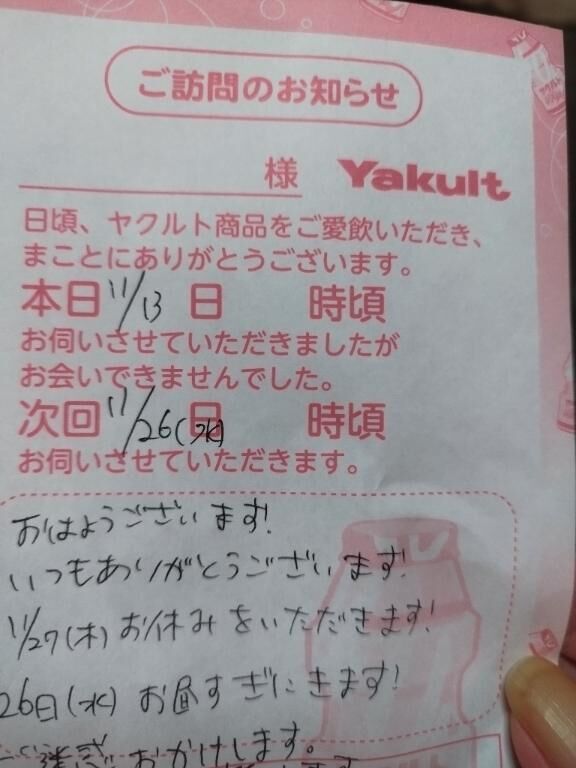 ご訪問のお知らせ
様 Yakult
日頃、ヤクルト商品をご愛飲いただき、
まことにありがとうございます。
本日 11/13 日 時頃
お伺いさせていただきましたが
お会いできませんでした。
次回 11/26(水) 日 時頃
お伺いさせていただきます。
おはようございます!
いつもありがとうございます!
11/27(木) お休みをいただきます!
26日(水) お昼すぎにきます!
ご迷惑おかけします。